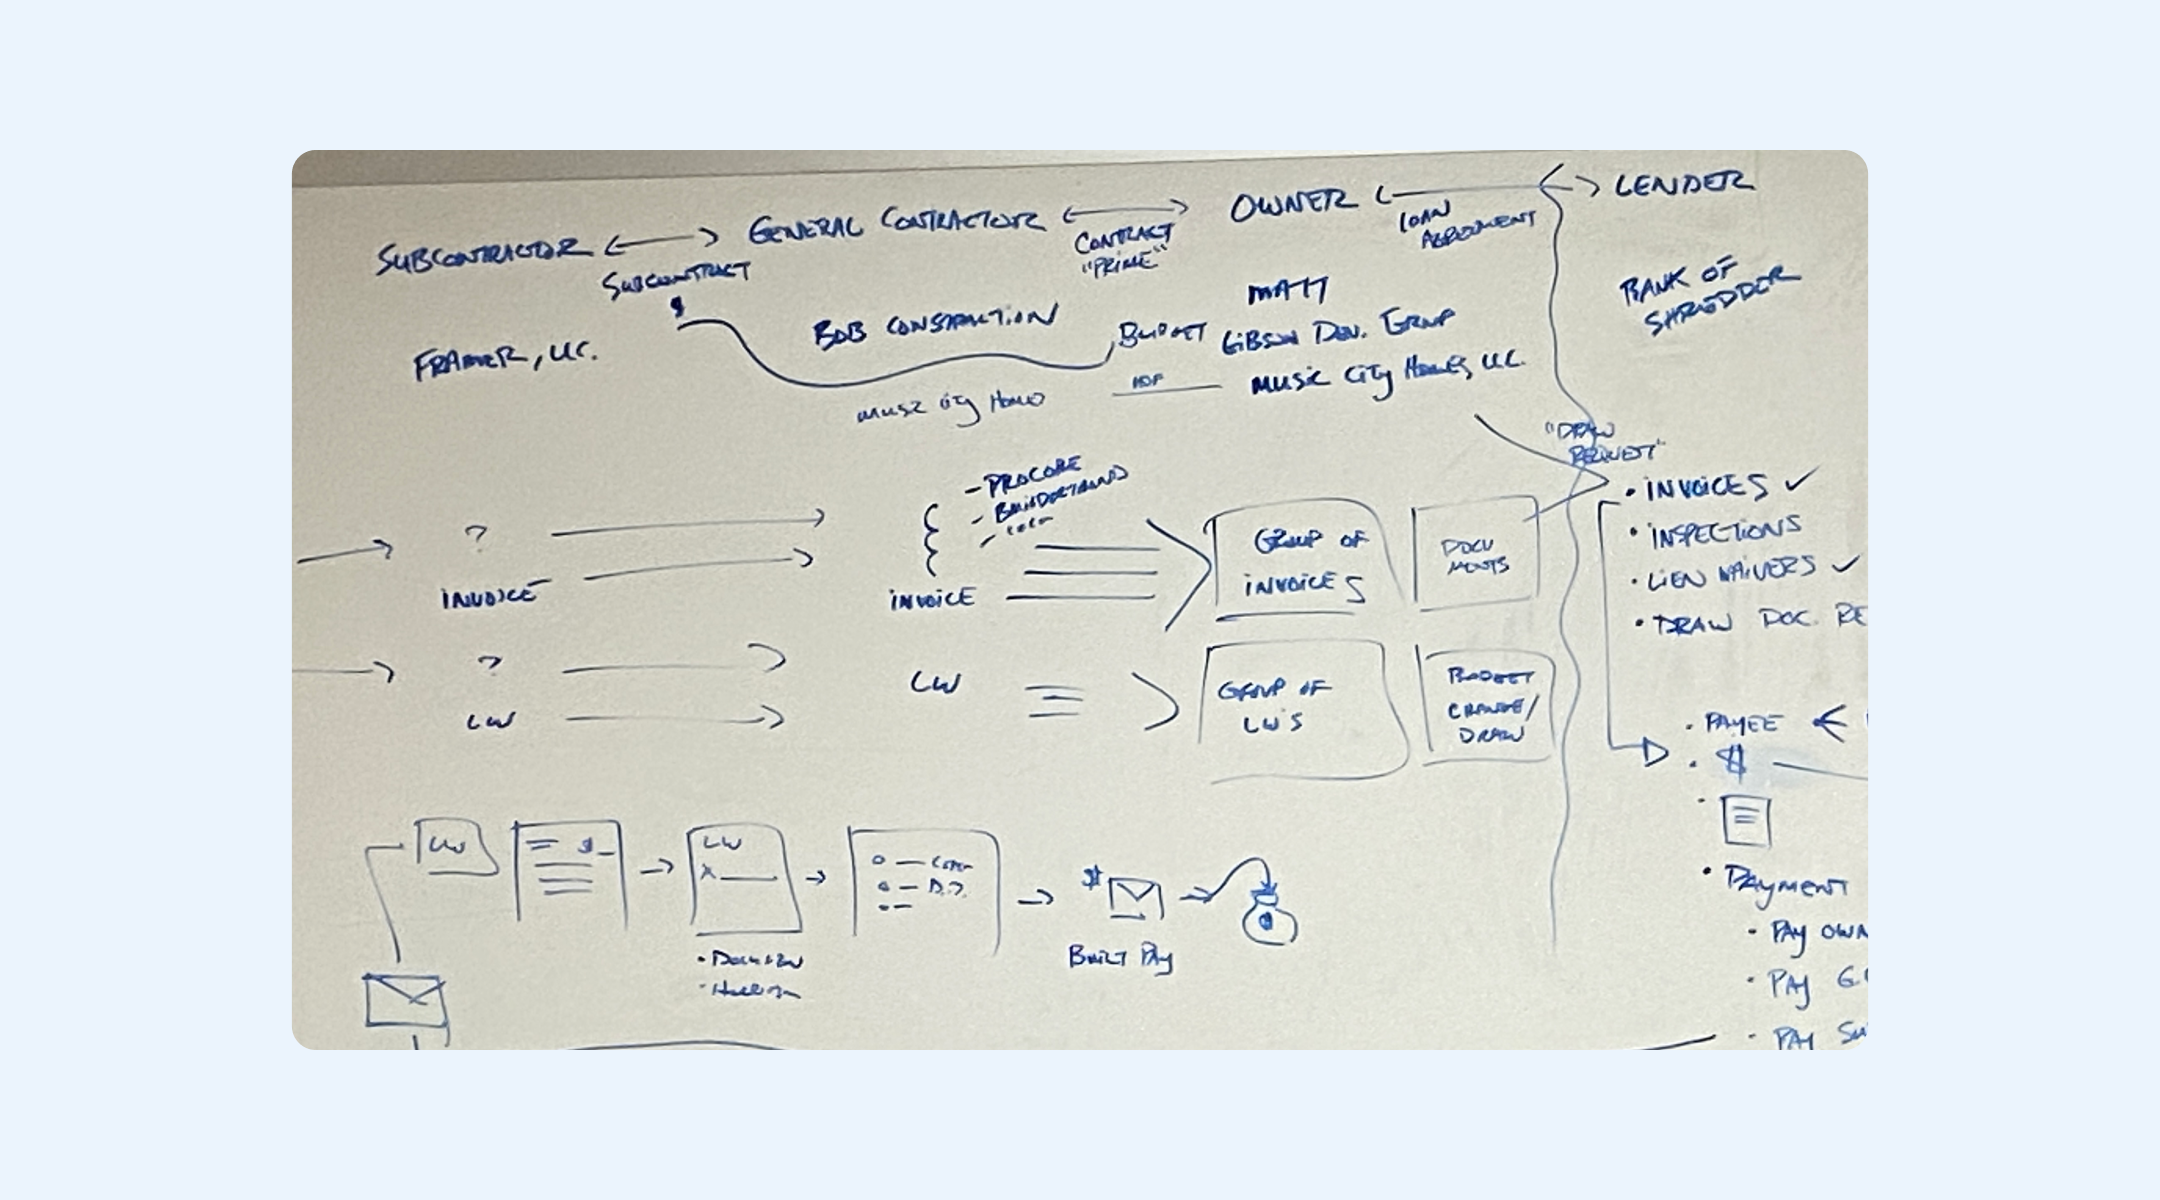 SUBCONTRACTOR
SUBCONTRACT
$
GENERAL CONTRACTOR
CONTRACT
"PRIME"
OWNER
LOAN
AGREEMENT
LENDER
FRAMER, LLC.
BOB CONSTRUCTION
MUSIC CITY HOMES
BUDGET
MATT
GIBSON DEV. GROUP
MUSIC CITY HOMES, LLC.
BANK OF
SHREDDER
"DRAW
REQUEST"
?
INVOICE
- PROCORE
- BUILDERTREND
INVOICE
GROUP OF
INVOICES
DOCU
MENTS
• INVOICES ✓
• INSPECTIONS
• LIEN WAIVERS ✓
• DRAW DOC. RE
?
LW
LW
GROUP OF
LW'S
BUDGET
CHANGE/
DRAW
• PAYEE
• $
LW
$
LW
X
$
BUILT PAY
$
• PAYMENT
• PAY OWN
• PAY G.C
• PAY SU